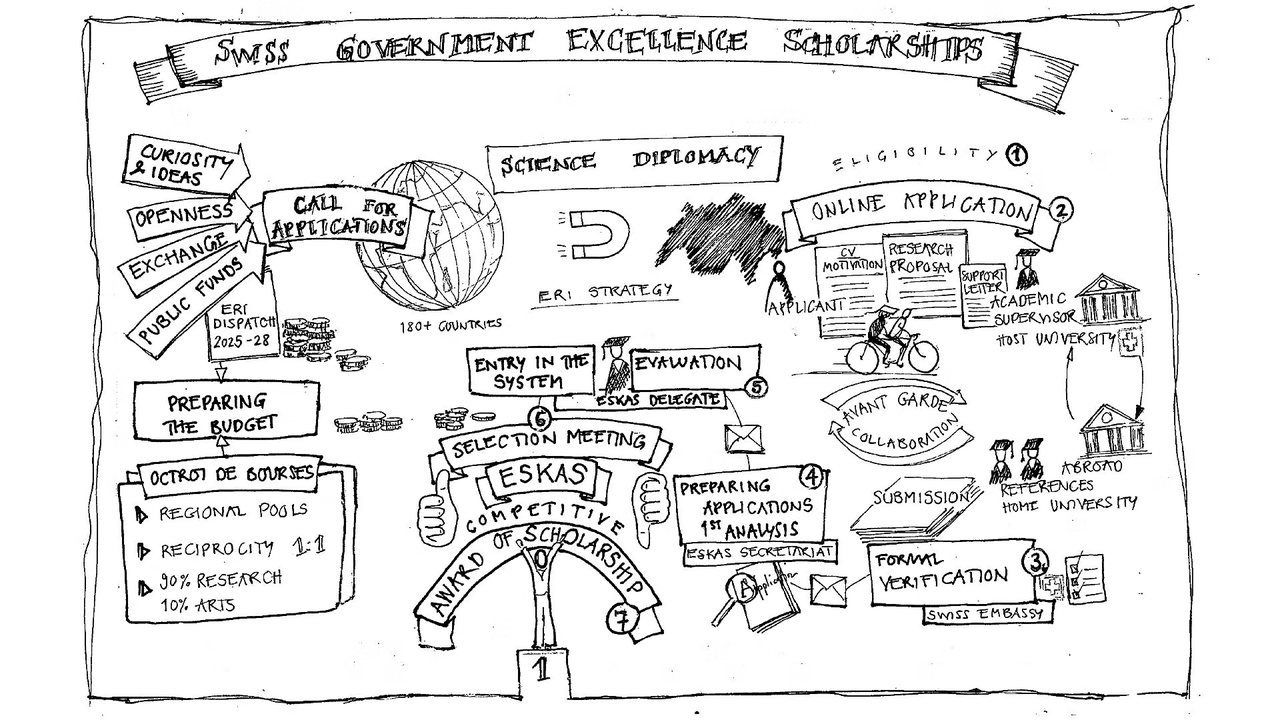 SWISS GOVERNMENT EXCELLENCE SCHOLARSHIPS
CURIOSITY
& IDEAS
OPENNESS
EXCHANGE
PUBLIC FUNDS
CALL FOR
APPLICATIONS
180+ COUNTRIES
SCIENCE DIPLOMACY
ERI STRATEGY
ELIGIBILITY 1
ONLINE APPLICATION 2
CV
MOTIVATION
RESEARCH
PROPOSAL
SUPPORT
LETTER
APPLICANT
ACADEMIC
SUPERVISOR
HOST UNIVERSITY
AVANT GARDE
COLLABORATION
ABROAD
REFERENCES
HOME UNIVERSITY
SUBMISSION
FORMAL
VERIFICATION
3
SWISS EMBASSY
Application
PREPARING
APPLICATIONS
1ST ANALYSIS
4
ESKAS SECRETARIAT
EVALUATION
5
ESKAS DELEGATE
ENTRY IN THE
SYSTEM
6
SELECTION MEETING
ESKAS
COMPETITIVE
AWARD OF SCHOLARSHIP
7
1
ERI
DISPATCH
2025-28
PREPARING
THE BUDGET
OCTROI DE BOURSES
REGIONAL POOLS
RECIPROCITY 1:1
90% RESEARCH
10% ARTS